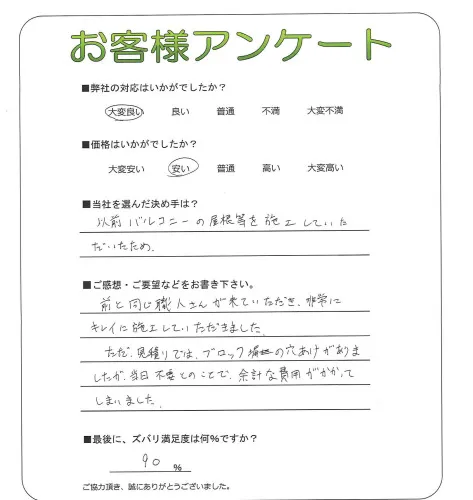 お客様アンケート
■弊社の対応はいかがでしたか？
大変良い 良い 普通 不満 大変不満
■価格はいかがでしたか？
大変安い 安い 普通 高い 大変高い
■当社を選んだ決め手は？
以前バルコニーの屋根等を施工していた
だいたため.
■ご感想・ご要望などをお書き下さい。
前と同じ職人さんが来ていただき、非常に
キレイに施工していただきました。
ただ、見積りでは、ブロック塀の穴あけがありま
したが、当日不要とのことで、余計な費用がかかって
しまいました。
■最後に、ズバリ満足度は何%ですか？
90 %
ご協力頂き、誠にありがとうございました。